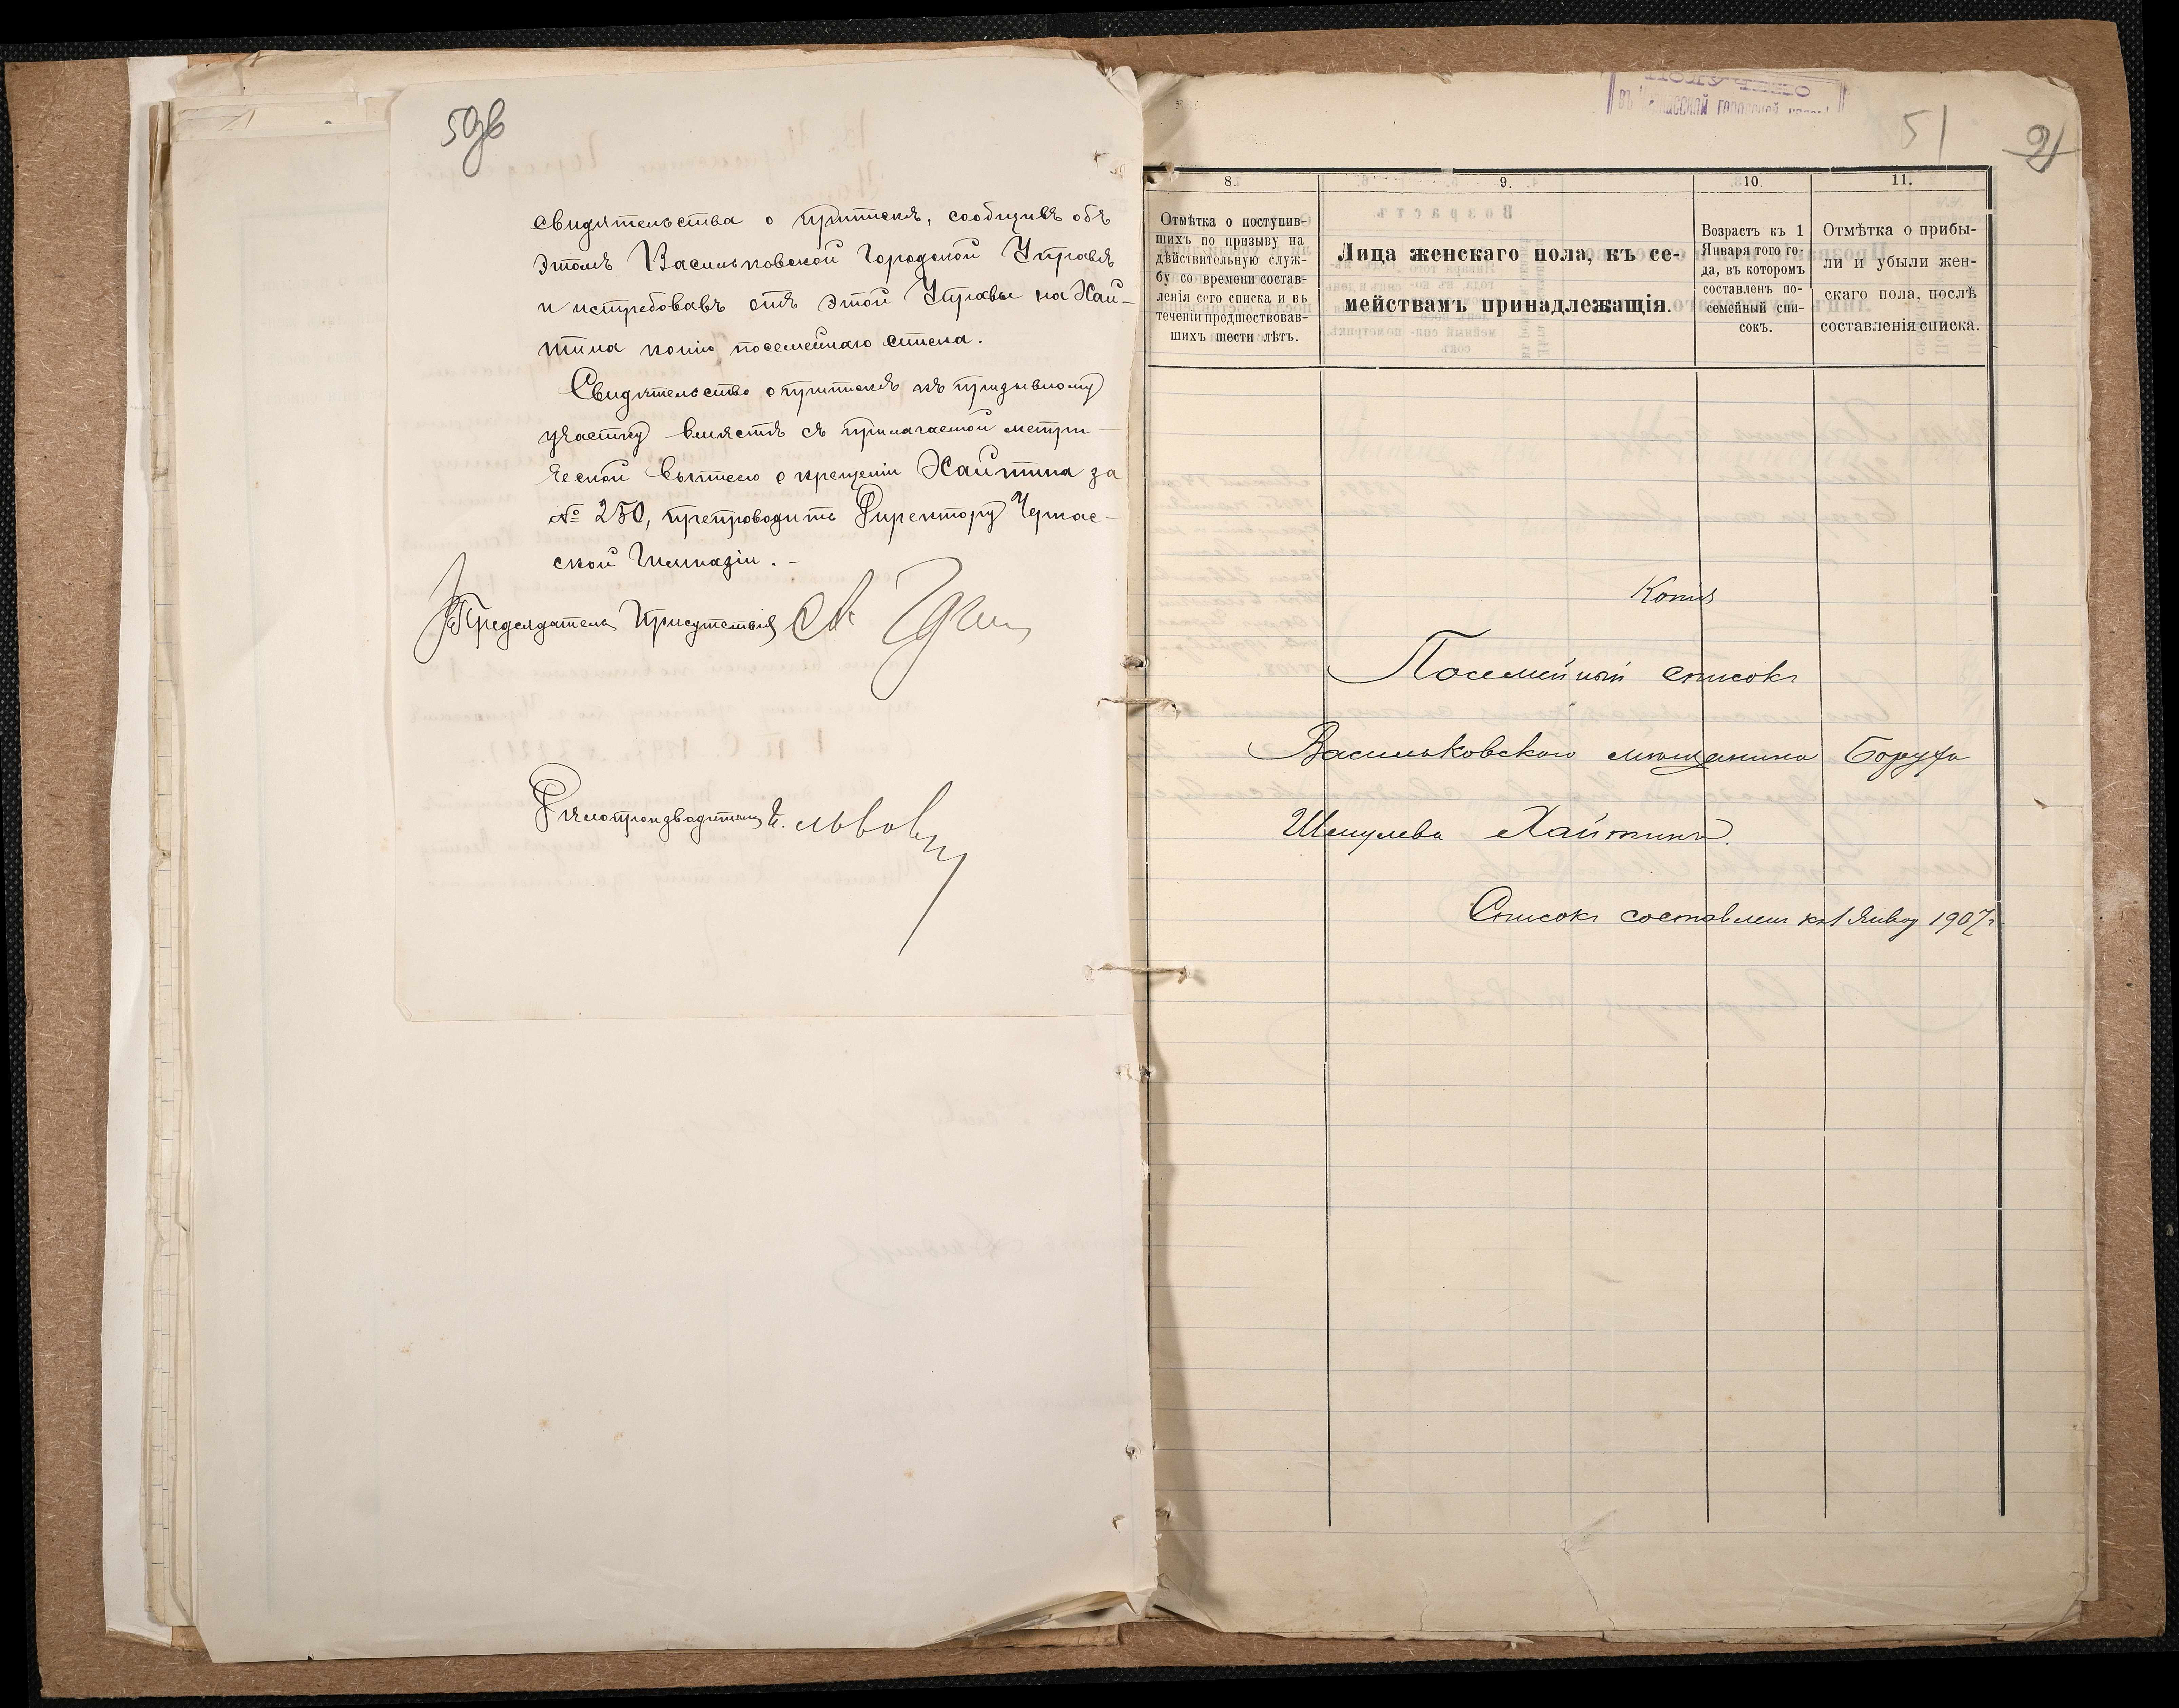 50об
свидѣтельства о припискѣ, сообщивъ объ
этомъ Васильковской Городской Управѣ
и истребовавъ отъ этой Управы на Хай-
тина копію посемейнаго списка.
Свидѣтельство о припискѣ къ призывному
участку вмѣстѣ съ прилагаемой метри-
ческой выписью о крещеніи Хайтина за
№ 250, препроводить Директору Черкас-
ской Гимназіи. -
Предсѣдатель Присутствія
Дѣлопроизводитель
ПОЛУЧЕНО
ВЪ ЧЕРКАССКОЙ ГОРОДСКОЙ
51
8.
9.
10.
11.
Отмѣтка о поступив-
шихъ по призыву на
дѣйствительную служ-
бу со времени состав-
ленія сего списка и въ
теченіи предшествовав-
шихъ шести лѣтъ.
Лица женскаго пола, къ се-
мействамъ принадлежащія.
Возрастъ къ 1
Января того го-
да, въ которомъ
составленъ по-
семейный спи-
сокъ.
Отмѣтка о прибы-
ли и убыли жен-
скаго пола, послѣ
составленія списка.
Копія
Посемейный списокъ
Васильковскаго мѣщанина Боруха
Шмулева Хайтина.
Списокъ составленъ къ 1 Январ 1907 г.